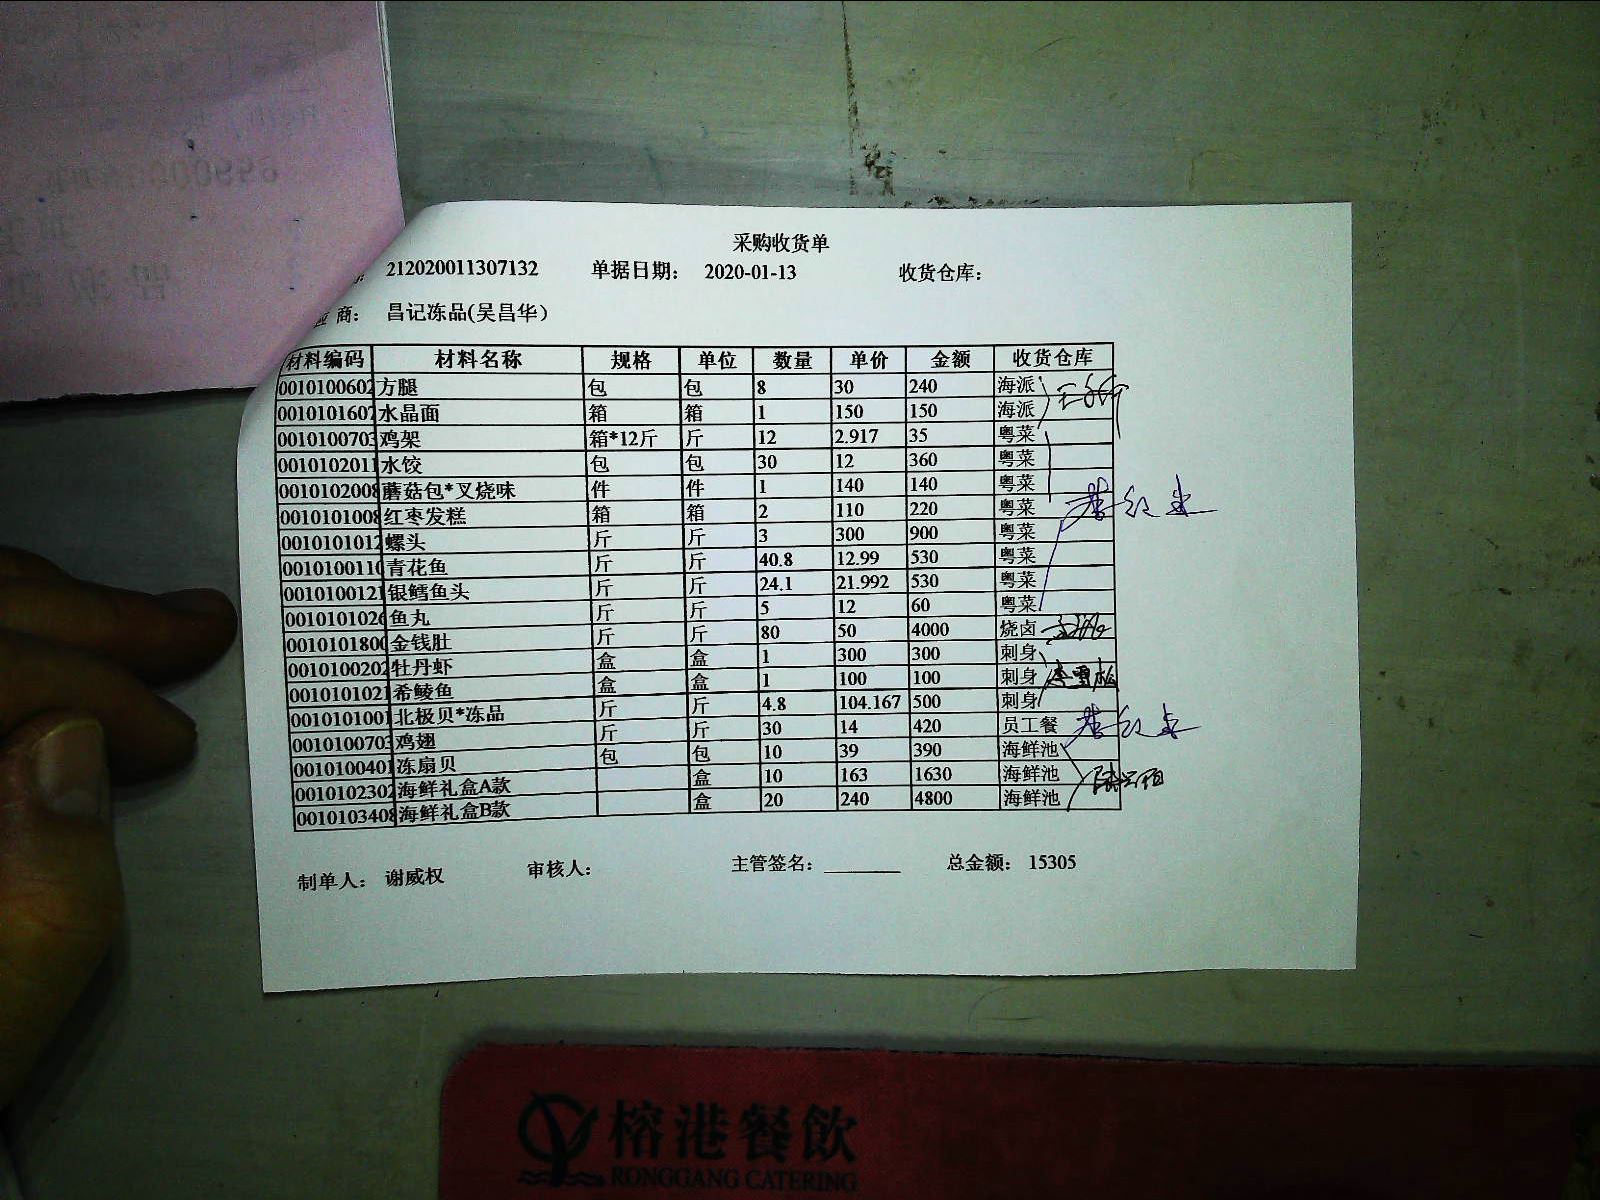 采购收货单
212020011307132 单据日期： 2020-01-13 收货仓库：
商： 昌记冻品(吴昌华)
材料编码 材料名称 规格 单位 数量 单价 金额 收货仓库
0010100602 方腿 包 包 8 30 240 海派
0010101607 水晶面 箱 箱 1 150 150 海派
0010100703 鸡架 箱*12斤 斤 12 2.917 35 粤菜
0010102011 水饺 包 包 30 12 360 粤菜
0010102008 蘑菇包*叉烧味 件 件 1 140 140 粤菜
0010101008 红枣发糕 箱 箱 2 110 220 粤菜
0010101012 螺头 斤 斤 3 300 900 粤菜
0010100110 青花鱼 斤 斤 40.8 12.99 530 粤菜
0010100121 银鳕鱼头 斤 斤 24.1 21.992 530 粤菜
0010101026 鱼丸 斤 斤 5 12 60 粤菜
0010101800 金钱肚 斤 斤 80 50 4000 烧卤
0010100202 牡丹虾 盒 盒 1 300 300 刺身
0010101021 希鲮鱼 盒 盒 1 100 100 刺身 李雪松
0010101001 北极贝*冻品 斤 斤 4.8 104.167 500 刺身
0010100703 鸡翅 斤 斤 30 14 420 员工餐
0010100401 冻扇贝 包 包 10 39 390 海鲜池
0010102302 海鲜礼盒A款 盒 10 163 1630 海鲜池
0010103408 海鲜礼盒B款 盒 20 240 4800 海鲜池
制单人： 谢威权 审核人： 主管签名： 总金额： 15305
榕港餐飲
RONGGANG CATERING